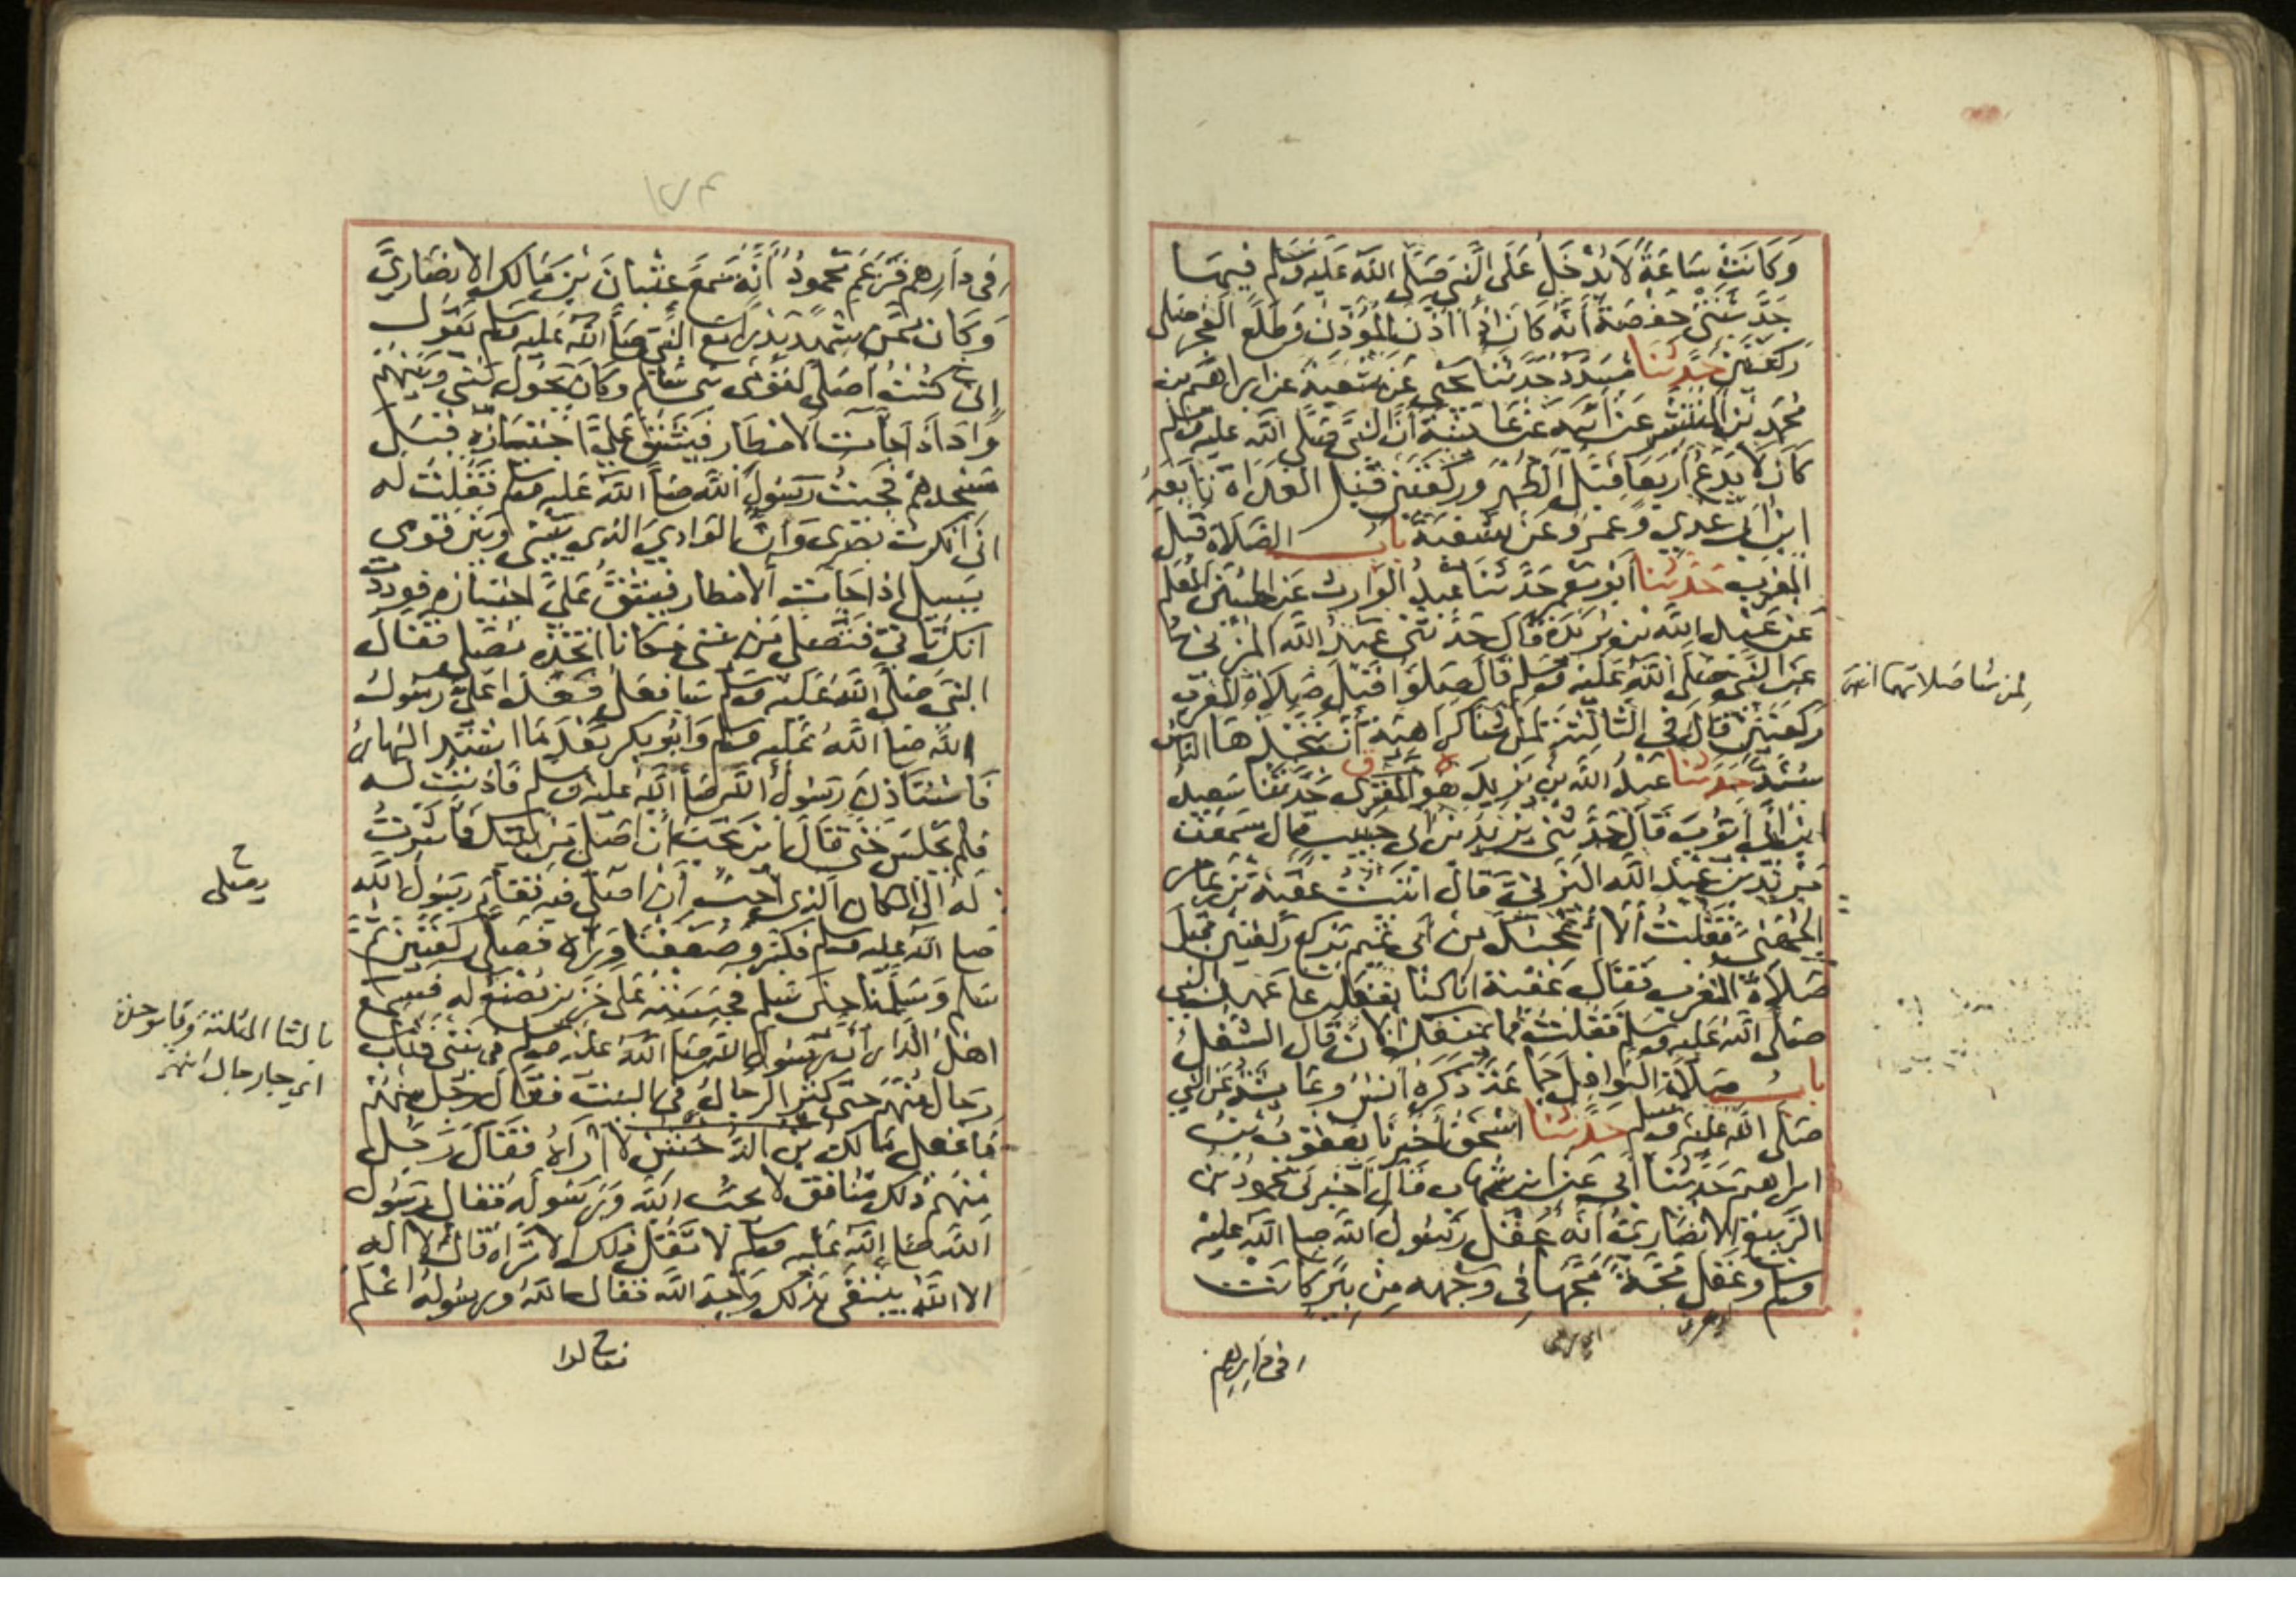 وَكَانَتْ سَاعَةً لَا يُدْخَلُ عَلَى النَّبِيِّ صَلَّى اللَّهُ عَلَيْهِ وَسَلَّمَ فِيهَا
حَدَّثَتْنِي حَفْصَةُ أَنَّهُ كَانَ إِذَا أَذَّنَ الْمُؤَذِّنُ وَطَلَعَ الْفَجْرُ صَلَّى
رَكْعَتَيْنِ حَدَّثَنَا مُسَدَّدٌ حَدَّثَنَا يَحْيَى عَنْ شُعْبَةَ عَنْ إِبْرَاهِيمَ بْنِ
مُحَمَّدِ بْنِ الْمُنْتَشِرِ عَنْ أَبِيهِ عَنْ عَائِشَةَ أَنَّ النَّبِيَّ صَلَّى اللَّهُ عَلَيْهِ وَسَلَّمَ
كَانَ لَا يَدَعُ أَرْبَعًا قَبْلَ الظُّهْرِ وَرَكْعَتَيْنِ قَبْلَ الْغَدَاةِ تَابَعَهُ
ابْنُ أَبِي عَدِيٍّ وَعَمْرٌو عَنْ شُعْبَةَ بَابُ الصَّلَاةِ قَبْلَ
الْمَغْرِبِ حَدَّثَنَا أَبُو مَعْمَرٍ حَدَّثَنَا عَبْدُ الْوَارِثِ عَنِ الْحُسَيْنِ الْمُعَلِّمِ
عَنْ عَبْدِ اللَّهِ بْنِ بُرَيْدَةَ قَالَ حَدَّثَنِي عَبْدُ اللَّهِ الْمُزَنِيُّ
عَنِ النَّبِيِّ صَلَّى اللَّهُ عَلَيْهِ وَسَلَّمَ قَالَ صَلُّوا قَبْلَ صَلَاةِ الْمَغْرِبِ
رَكْعَتَيْنِ قَالَ فِي الثَّالِثَةِ لِمَنْ شَاءَ كَرَاهِيَةَ أَنْ يَتَّخِذَهَا النَّاسُ
سُنَّةً حَدَّثَنَا عَبْدُ اللَّهِ بْنُ يَزِيدَ هُوَ الْمُقْرِئُ حَدَّثَنَا سَعِيدُ
ابْنُ أَبِي أَيُّوبَ قَالَ حَدَّثَنِي يَزِيدُ بْنُ أَبِي حَبِيبٍ قَالَ سَمِعْتُ
مَرْثَدَ بْنَ عَبْدِ اللَّهِ الْيَزَنِيَّ قَالَ أَتَيْتُ عُقْبَةَ بْنَ عَامِرٍ
الْجُهَنِيَّ فَقُلْتُ أَلَا أُعْجِبُكَ مِنْ أَبِي تَمِيمٍ يَرْكَعُ رَكْعَتَيْنِ قَبْلَ
صَلَاةِ الْمَغْرِبِ فَقَالَ عُقْبَةُ إِنَّا كُنَّا نَفْعَلُهُ عَلَى عَهْدِ النَّبِيِّ
صَلَّى اللَّهُ عَلَيْهِ وَسَلَّمَ فَقُلْتُ فَمَا يَمْنَعُكَ الْآنَ قَالَ الشُّغْلُ
بَابُ صَلَاةِ النَّوَافِلِ جَمَاعَةً ذَكَرَهُ أَنَسٌ وَعَائِشَةُ عَنِ النَّبِيِّ
صَلَّى اللَّهُ عَلَيْهِ وَسَلَّمَ حَدَّثَنَا إِسْحَقُ أَخْبَرَنَا يَعْقُوبُ بْنُ
إِبْرَاهِيمَ حَدَّثَنَا أَبِي عَنِ ابْنِ شِهَابٍ قَالَ أَخْبَرَنِي مَحْمُودُ بْنُ
الرَّبِيعِ الْأَنْصَارِيُّ أَنَّهُ عَقَلَ رَسُولَ اللَّهِ صَلَّى اللَّهُ عَلَيْهِ
وَسَلَّمَ وَعَقَلَ مَجَّةً مَجَّهَا فِي وَجْهِهِ مِنْ بِئْرٍ كَانَتْ
لمن شا صلاتهما انتهى
في دارهم
فِي دَارِهِمْ فَزَعَمَ مَحْمُودٌ أَنَّهُ سَمِعَ عِتْبَانَ بْنَ مَالِكٍ الْأَنْصَارِيَّ
وَكَانَ مِمَّنْ شَهِدَ بَدْرًا مَعَ النَّبِيِّ صَلَّى اللَّهُ عَلَيْهِ وَسَلَّمَ يَقُولُ
إِنِّي كُنْتُ أُصَلِّي لِقَوْمِي بَنِي سَالِمٍ وَكَانَ يَحُولُ بَيْنِي وَبَيْنَهُمْ
وَادٍ إِذَا جَاءَتِ الْأَمْطَارُ فَيَشُقُّ عَلَيَّ اجْتِيَازُهُ قِبَلَ
مَسْجِدِهِمْ فَجِئْتُ رَسُولَ اللَّهِ صَلَّى اللَّهُ عَلَيْهِ وَسَلَّمَ فَقُلْتُ لَهُ
إِنِّي أَنْكَرْتُ بَصَرِي وَإِنَّ الْوَادِيَ الَّذِي بَيْنِي وَبَيْنَ قَوْمِي
يَسِيلُ إِذَا جَاءَتِ الْأَمْطَارُ فَيَشُقُّ عَلَيَّ اجْتِيَازُهُ فَوَدِدْتُ
أَنَّكَ تَأْتِي فَتُصَلِّي مِنْ بَيْتِي مَكَانًا أَتَّخِذُهُ مُصَلًّى فَقَالَ
النَّبِيُّ صَلَّى اللَّهُ عَلَيْهِ وَسَلَّمَ سَأَفْعَلُ فَغَدَا عَلَيَّ رَسُولُ
اللَّهِ صَلَّى اللَّهُ عَلَيْهِ وَسَلَّمَ وَأَبُو بَكْرٍ بَعْدَ مَا اشْتَدَّ النَّهَارُ
فَاسْتَأْذَنَ رَسُولُ اللَّهِ صَلَّى اللَّهُ عَلَيْهِ وَسَلَّمَ فَأَذِنْتُ لَهُ
فَلَمْ يَجْلِسْ حَتَّى قَالَ أَيْنَ تُحِبُّ أَنْ أُصَلِّيَ مِنْ بَيْتِكَ فَأَشَرْتُ
لَهُ إِلَى الْمَكَانِ الَّذِي أُحِبُّ أَنْ أُصَلِّيَ فِيهِ فَقَامَ رَسُولُ اللَّهِ
صَلَّى اللَّهُ عَلَيْهِ وَسَلَّمَ فَكَبَّرَ وَصَفَفْنَا وَرَاءَهُ فَصَلَّى رَكْعَتَيْنِ ثُمَّ
سَلَّمَ وَسَلَّمْنَا حِينَ سَلَّمَ فَحَبَسْتُهُ عَلَى خَزِيرٍ يُصْنَعُ لَهُ فَسَمِعَ
أَهْلُ الدَّارِ أَنَّ رَسُولَ اللَّهِ صَلَّى اللَّهُ عَلَيْهِ وَسَلَّمَ فِي بَيْتِي فَثَابَ
رِجَالٌ مِنْهُمْ حَتَّى كَثُرَ الرِّجَالُ فِي الْبَيْتِ فَقَالَ رَجُلٌ مِنْهُمْ
مَا فَعَلَ مَالِكُ بْنُ الدُّخْشُنِ لَا أَرَاهُ فَقَالَ رَجُلٌ
مِنْهُمْ ذَلِكَ مُنَافِقٌ لَا يُحِبُّ اللَّهَ وَرَسُولَهُ فَقَالَ رَسُولُ
اللَّهِ صَلَّى اللَّهُ عَلَيْهِ وَسَلَّمَ لَا تَقُلْ ذَلِكَ أَلَا تَرَاهُ قَالَ لَا إِلَهَ
إِلَّا اللَّهُ يَبْتَغِي بِذَلِكَ وَجْهَ اللَّهِ فَقَالَ اللَّهُ وَرَسُولُهُ أَعْلَمُ
يصلي
بالثا المثلثة
اي جا رجال انتهى
فقالوا